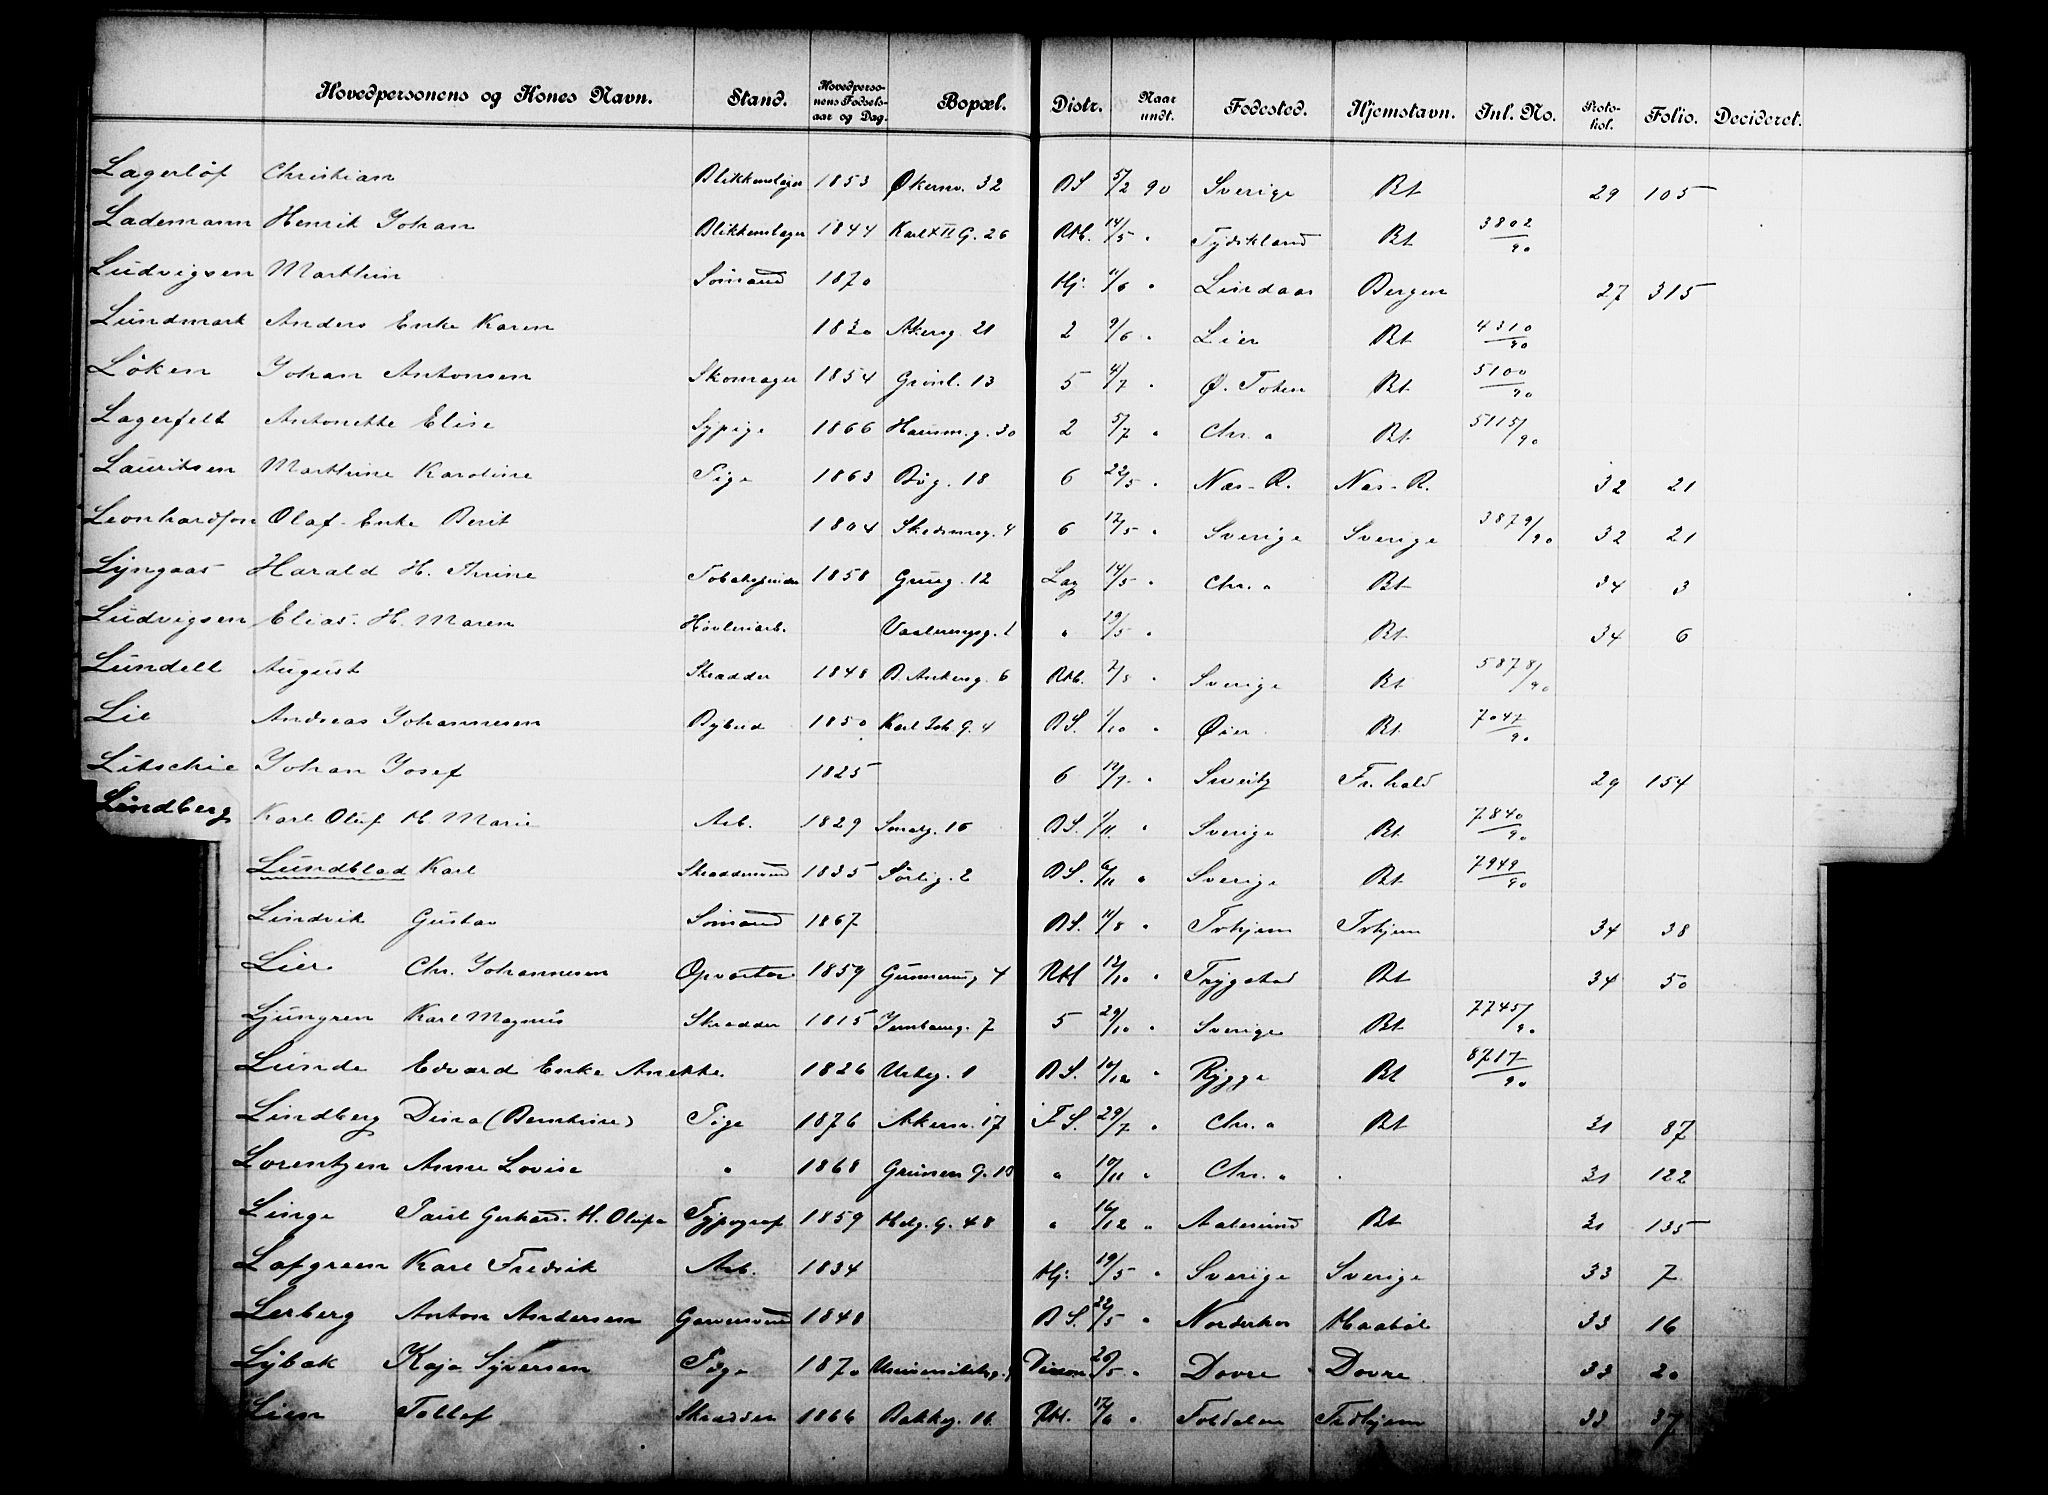 Hovedpersonens og Kones Navn. Stand. Hovedpersonens Fødselsaar og Dag. Bopæl. Distr. Naar undt. Fødested. Hjemstavn. Inl. No. Protokol. Folio. Decideret.
Lagerlöf Christian Blikkenslager 1853 Økernv. 32 BS 5/2 90 Sverige Bt 29 105
Lademann Henrik Johan Blikkenslager 1844 Karl XII G. 26 Rbl. 14/5 " Tydskland Bt 3802/90
Ludvigsen Marthin Sömand 1870 Hj. 11/6 " Lindaas Bergen 27 315
Lundmark Anders Enke Karen 1830 Akersg. 21 2 9/6 " Lier Bt 4310/90
Löken Johan Antonsen Skomager 1854 Grönl. 13 5 4/7 " Ø. Toten Bt 5100/90
Lagerfelt Antonette Elise Sypige 1866 Hausm.g. 30 2 5/7 " Chr.a Bt 5115/90
Lauritsen Marthine Karoline Pige 1863 Bög. 18 6 22/5 " Næs - R. Næs - R. 32 21
Leonhardson Olaf - Enke Berit 1804 Skedsmog. 4 6 17/5 " Sverige Sverige 3879/90 32 21
Lyngaas Harald H. Thrine Tobakspinder 1858 Grueg. 12 Lag 14/5 " Chr.a Bt 34 3
Ludvigsen Elias. H. Maren Hövleriarb. Vaalerengsg. 1 " 19/5 " Bt 34 6
Lundell August Skrædder 1848 B. Ankersg. 6 Rbl. 2/8 " Sverige Bt 5878/90
Lie Andreas Johannesen Bybud 1850 Karl Joh. G. 4 BS. 1/10 " Øier Bt 7047/90
Litschie Johan Josef 1825 6 12/7 " Sweitz Fr.hald 29 154
Lindberg Karl Oluf H. Marie Arb. 1829 Smalg. 16 BS. 1/11 " Sverige Bt 7840/90
Lundblad Karl Skræddersvend 1835 Sörlig. 2 BS. 6/11 " Sverige Bt 7949/90
Lindvik Gustav Sömand 1867 BS. 11/8 " Tvhjem Tvhjem 34 38
Lier. Chr. Johannesen Opvarter 1859 Gunnerusg 4 Rbl 13/10 " Trygstad Bt 34 50
Ljungren Karl Magnus Skrædder 1815 Jernbaneg. 7 5 29/10 " Sverige Bt 7745/90
Lunde Edvard Enke Anette. 1826 Urteg. 1 BS. 10/12 " Rygge Bt 8717/90
Lindberg Dina (Bernhine) Pige 1876 Akersv. 17 FS. 29/7 " Chr.a Bt 31 87
Lorentzen Anne Lovise " 1868 Grünen G. 10 " 10/11 " Chr.a 31 122
Linge Paul Gerhard. H. Olufa Typograf 1859 Helg. G. 48 " 16/12 " Aalesund Bt 31 135
Lofgreen Karl Fredrik Arb. 1834 Hj. 19/5 " Sverige Sverige 33 7
Lerberg Anton Andersen Garversvend 1848 BS. 22/5 " Norderhov Haaböl 33 16
Lybæk Kaja Syversen Pige 1870 Universitetsg. 26/5 " Dovre Dovre 33 20
Lien Tollef Skrædder 1866 Bakkeg. 16 Rbl. 17/6 " Foldalen 33 37